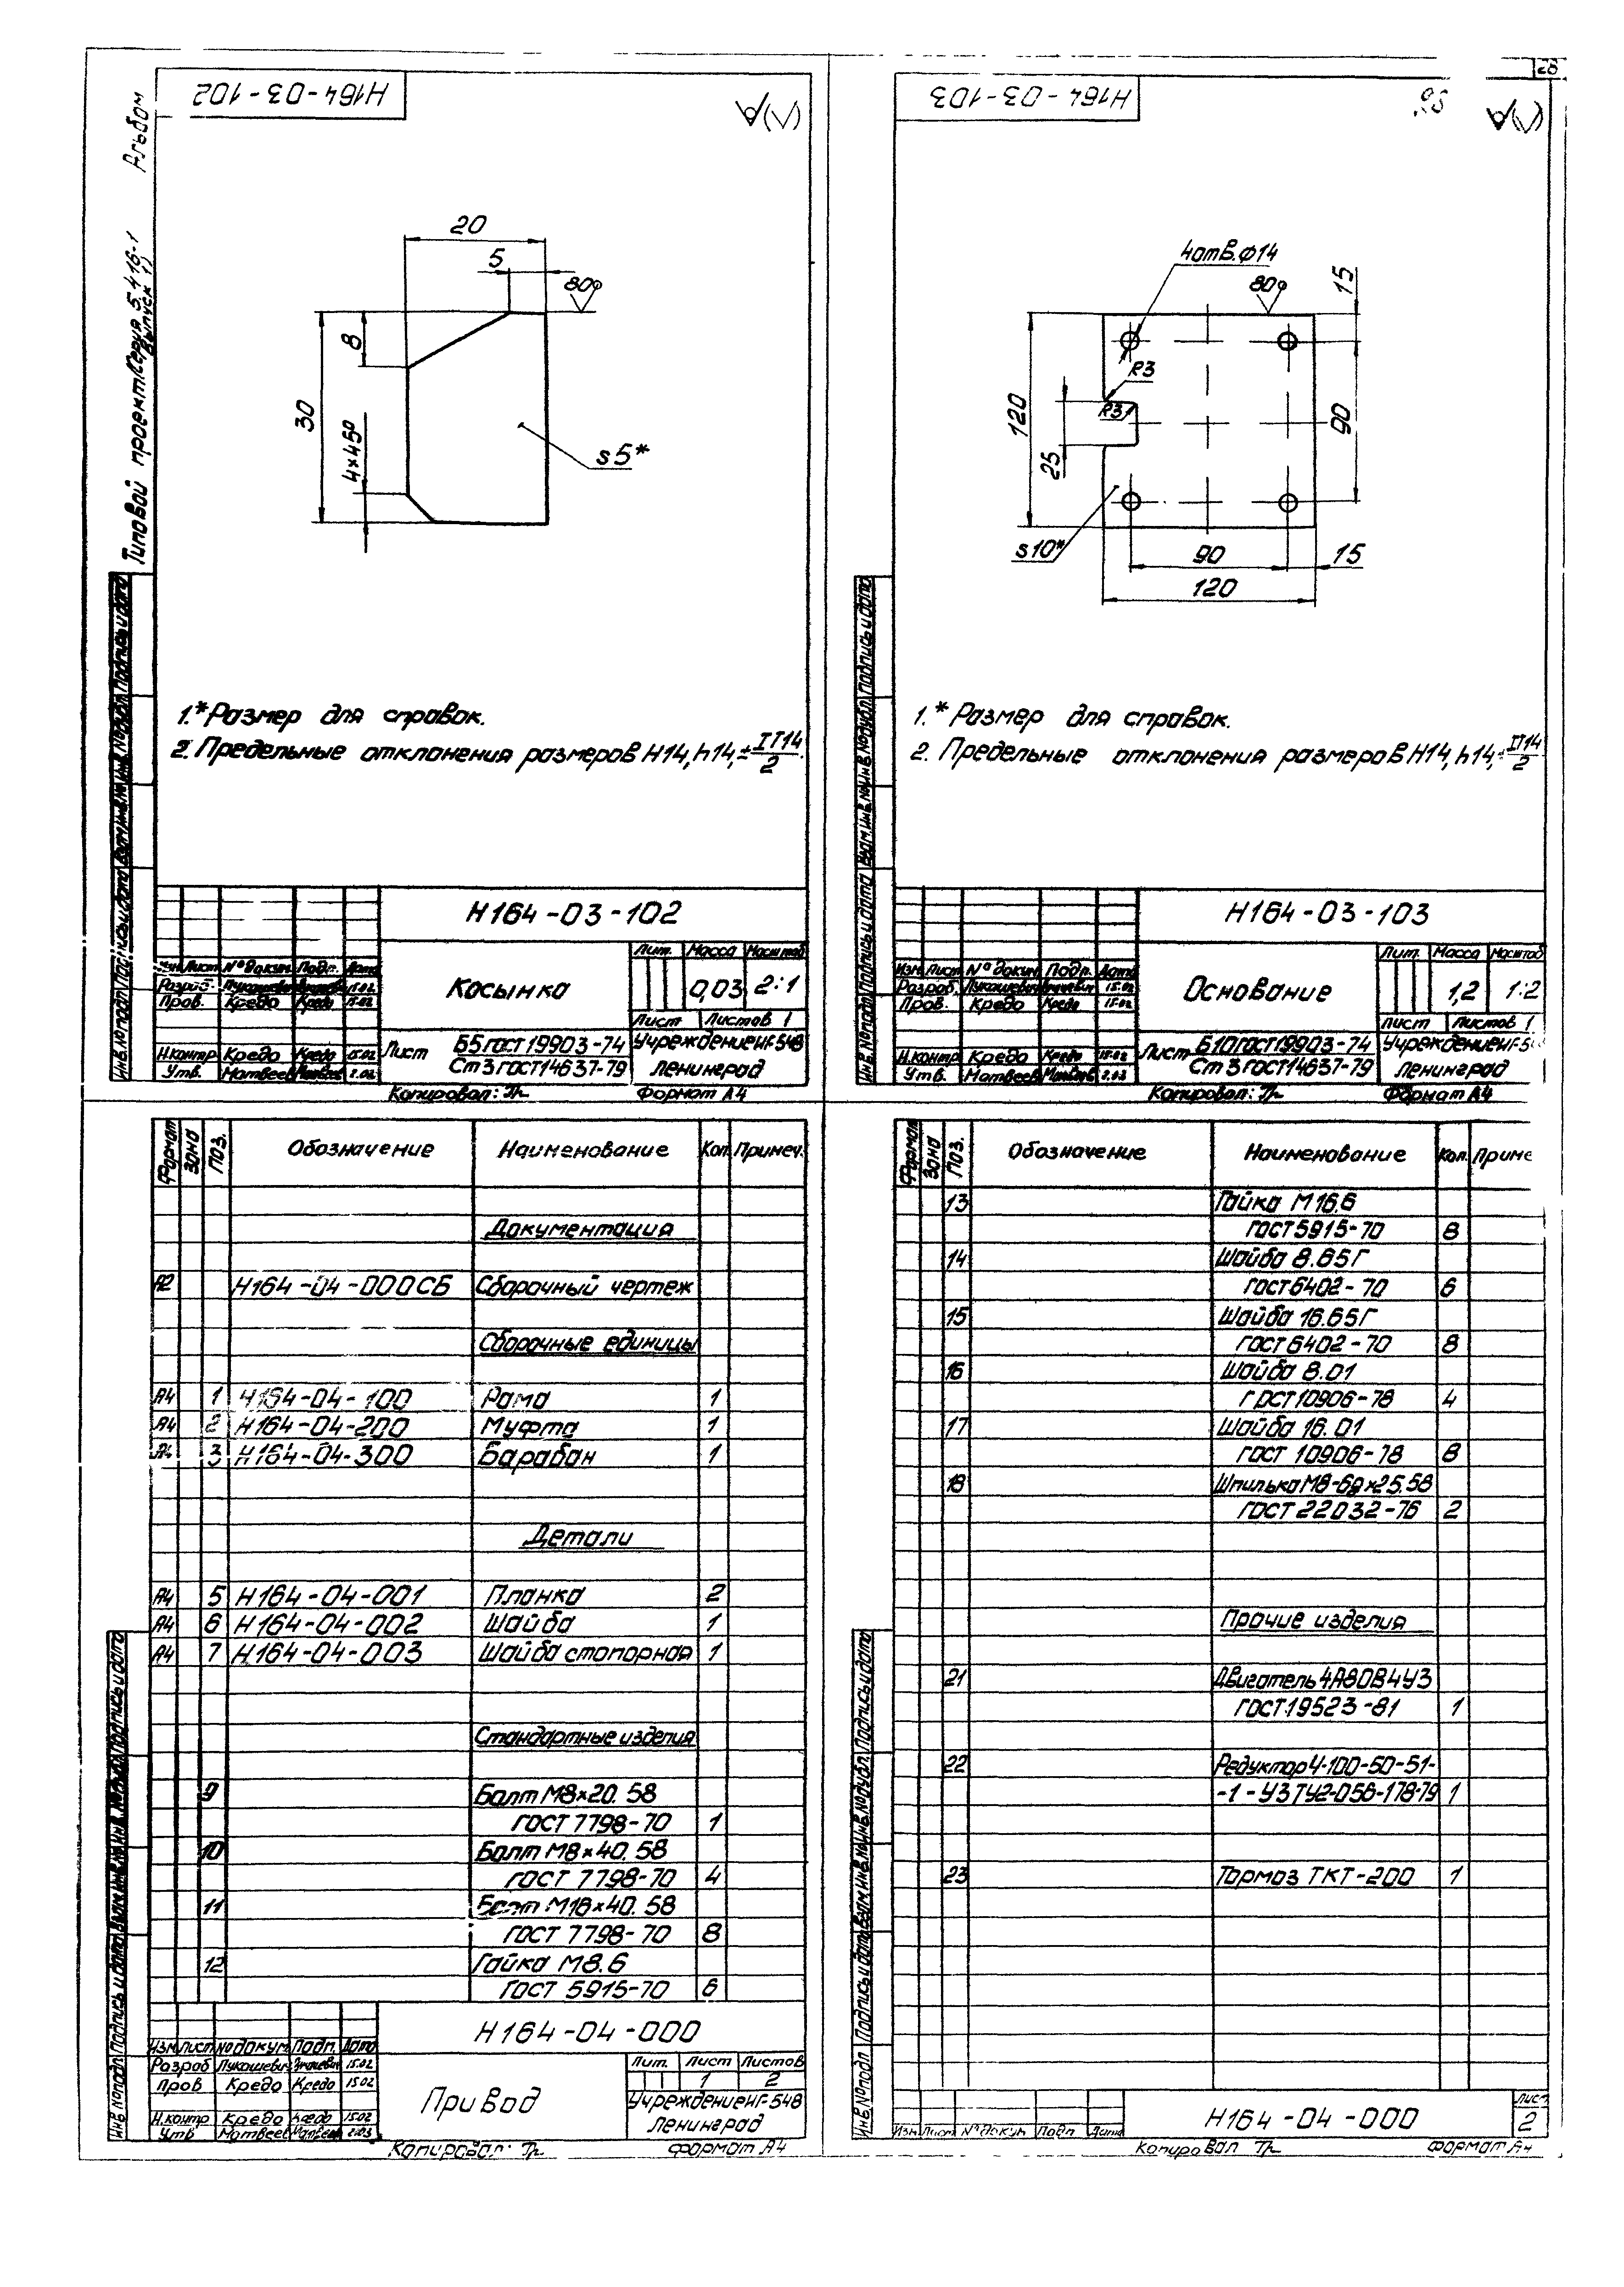 28
Типовой проект (Серия 5.416-1 Выпуск 1) Альбом
Н164-03-102
20
5
80
8
30
4×45°
s5*
1.*Размер для справок.
2. Предельные отклонения размеров Н14, h14, ± IT14/2.
Н164-03-102
Косынка
Лит. Масса Масштаб
0,03 2:1
Лист Листов 1
Изм. Лист №докум. Подп. Дата
Разраб. Лукашевич 15.02
Пров. Кредо Кредо 15.02
Н.контр Кредо Кредо 15.02
Утв. Матвеев 2.03
Лист Б5 ГОСТ 19903-74
Ст3 ГОСТ 14637-79
Учреждение
Ленинград
Копировал:
Формат А4
Инв.№подл. Подпись и дата Взам.инв.№ Инв.№дубл. Подпись и дата
Н164-03-103
4отв.Ф14
80
15
R3
R3
120
25
90
s10*
90
15
120
1.* Размер для справок.
2. Предельные отклонения размеров Н14, h14, ± IT14/2
Н164-03-103
Основание
Лит. Масса Масштаб
1,2 1:2
Лист Листов 1
Изм. Лист №докум. Подп. Дата
Разраб. Лукашевич 15.02
Пров. Кредо Кредо 15.02
Н.контр Кредо Кредо 15.02
Утв. Матвеев 2.03
Лист Б10 ГОСТ 19903-74
Ст3 ГОСТ 14637-79
Учреждение
Ленинград
Копировал:
Формат А4
Инв.№подл. Подпись и дата Взам.инв.№ Инв.№дубл. Подпись и дата
Формат Зона Поз. Обозначение Наименование Кол. Примеч.
Документация
А2 Н164-04-000СБ Сборочный чертеж
Сборочные единицы
А4 1 Н164-04-100 Рама 1
А4 2 Н164-04-200 Муфта 1
А4 3 Н164-04-300 Барабан 1
Детали
А4 5 Н164-04-001 Планка 2
А4 6 Н164-04-002 Шайба 1
А4 7 Н164-04-003 Шайба стопорная 1
Стандартные изделия
9 Болт М8×20.58
ГОСТ 7798-70 1
10 Болт М8×40.58
ГОСТ 7798-70 4
11 Болт М16×40.58
ГОСТ 7798-70 8
12 Гайка М8.6
ГОСТ 5915-70 6
Н164-04-000
Изм Лист №докум. Подп. Дата
Разраб Лукашевич 15.02
Пров Кредо Кредо 15.02
Н.контр Кредо Кредо 15.02
Утв Матвеев 2.03
Привод
Лит. Лист Листов
1 2
Учреждение
Ленинград
Копировал:
Формат А4
Инв.№подл Подпись и дата Взам.инв.№ Инв.№дубл. Подпись и дата
Формат Зона Поз. Обозначение Наименование Кол. Приме
13 Гайка М16.6
ГОСТ 5915-70 8
14 Шайба 8.65Г
ГОСТ 6402-70 6
15 Шайба 16.65Г
ГОСТ 6402-70 8
16 Шайба 8.01
ГОСТ 10906-78 4
17 Шайба 16.01
ГОСТ 10906-78 8
18 Шпилька М8-6g×25.58
ГОСТ 22032-76 2
Прочие изделия
21 Двигатель 4А80В4У3
ГОСТ 19523-81 1
22 Редуктор Ч-100-50-51-
-1-У3 ТУ2-056-178-79 1
23 Тормоз ТКТ-200 1
Изм Лист №докум Подп Дата
Н164-04-000
Лист
2
Копировал
Формат А4
Инв.№подл Подпись и дата Взам.инв.№ Инв.№дубл. Подпись и дата